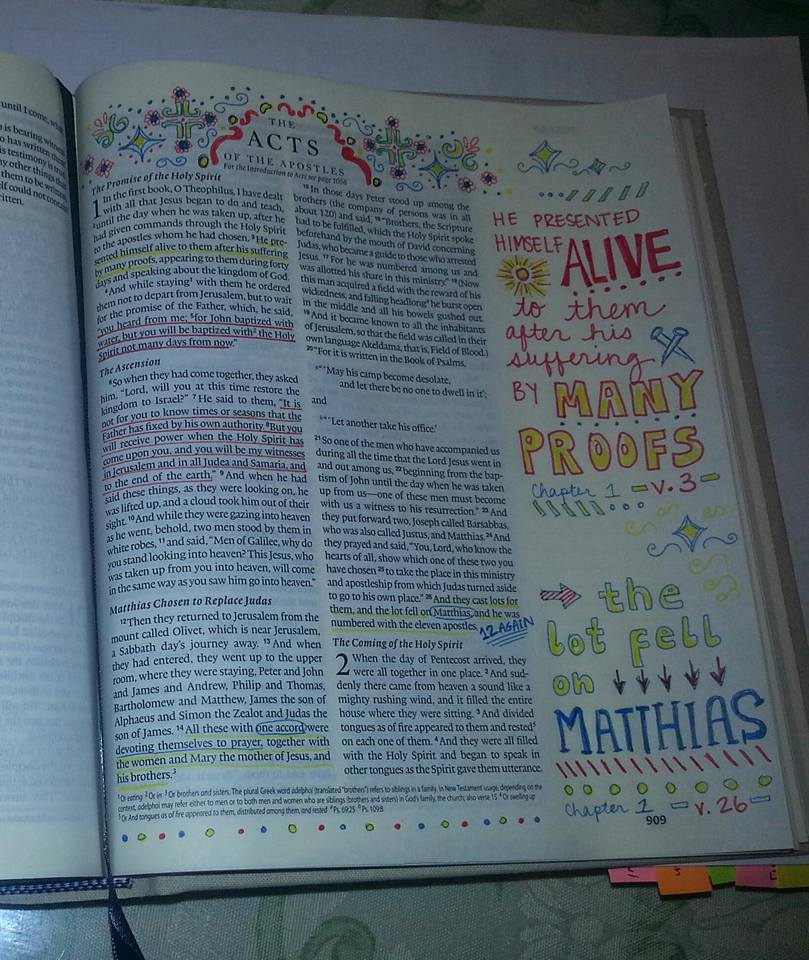 until I come, what
is bearing witness
o has written these
is testimony is true.
y other things that
them to be written,
elf could not contain
ritten.
THE
ACTS
OF THE APOSTLES
For the Introduction to Acts see page 1056
The Promise of the Holy Spirit
1 In the first book, O Theophilus, I have dealt
with all that Jesus began to do and teach,
2until the day when he was taken up, after he
had given commands through the Holy Spirit
to the apostles whom he had chosen. 3He pre-
sented himself alive to them after his suffering
by many proofs, appearing to them during forty
days and speaking about the kingdom of God.
4And while staying1 with them he ordered
them not to depart from Jerusalem, but to wait
for the promise of the Father, which, he said,
"you heard from me; 5for John baptized with
water, but you will be baptized with2 the Holy
Spirit not many days from now."
The Ascension
6So when they had come together, they asked
him, "Lord, will you at this time restore the
kingdom to Israel?" 7He said to them, "It is
not for you to know times or seasons that the
Father has fixed by his own authority. 8But you
will receive power when the Holy Spirit has
come upon you, and you will be my witnesses
in Jerusalem and in all Judea and Samaria, and
to the end of the earth." 9And when he had
said these things, as they were looking on, he
was lifted up, and a cloud took him out of their
sight. 10And while they were gazing into heaven
as he went, behold, two men stood by them in
white robes, 11and said, "Men of Galilee, why do
you stand looking into heaven? This Jesus, who
was taken up from you into heaven, will come
in the same way as you saw him go into heaven."
Matthias Chosen to Replace Judas
12Then they returned to Jerusalem from the
mount called Olivet, which is near Jerusalem,
a Sabbath day's journey away. 13And when
they had entered, they went up to the upper
room, where they were staying, Peter and John
and James and Andrew, Philip and Thomas,
Bartholomew and Matthew, James the son of
Alphaeus and Simon the Zealot and Judas the
son of James. 14All these with one accord were
devoting themselves to prayer, together with
the women and Mary the mother of Jesus, and
his brothers.3
15In those days Peter stood up among the
brothers (the company of persons was in all
about 120) and said, 16"Brothers, the Scripture
had to be fulfilled, which the Holy Spirit spoke
beforehand by the mouth of David concerning
Judas, who became a guide to those who arrested
Jesus. 17For he was numbered among us and
was allotted his share in this ministry." 18(Now
this man acquired a field with the reward of his
wickedness, and falling headlong4 he burst open
in the middle and all his bowels gushed out.
19And it became known to all the inhabitants
of Jerusalem, so that the field was called in their
own language Akeldama, that is, Field of Blood.)
20"For it is written in the Book of Psalms,
"'May his camp become desolate,
and let there be no one to dwell in it';
and
"'Let another take his office.'
21So one of the men who have accompanied us
during all the time that the Lord Jesus went in
and out among us, 22beginning from the bap-
tism of John until the day when he was taken
up from us—one of these men must become
with us a witness to his resurrection." 23And
they put forward two, Joseph called Barsabbas,
who was also called Justus, and Matthias. 24And
they prayed and said, "You, Lord, who know the
hearts of all, show which one of these two you
have chosen 25to take the place in this ministry
and apostleship from which Judas turned aside
to go to his own place." 26And they cast lots for
them, and the lot fell on Matthias, and he was
numbered with the eleven apostles.
12 AGAIN
The Coming of the Holy Spirit
2 When the day of Pentecost arrived, they
were all together in one place. 2And sud-
denly there came from heaven a sound like a
mighty rushing wind, and it filled the entire
house where they were sitting. 3And divided
tongues as of fire appeared to them and rested5
on each one of them. 4And they were all filled
with the Holy Spirit and began to speak in
other tongues as the Spirit gave them utterance.
1 Or eating 2 Or in 3 Or brothers and sisters. The plural Greek word adelphoi (translated "brothers") refers to siblings in a family. In New Testament usage, depending on the
context, adelphoi may refer either to men or to both men and women who are siblings (brothers and sisters) in God's family, the church; also verse 15 4 Or swelling up
5 Or And tongues as of fire appeared to them, distributed among them, and rested Ps. 69:25 Ps. 109:8
909
HE PRESENTED
HIMSELF ALIVE
to them
after his
suffering
BY MANY
PROOFS
Chapter 1 - v. 3 -
the
lot fell
on
MATTHIAS
Chapter 1 - v. 26 -